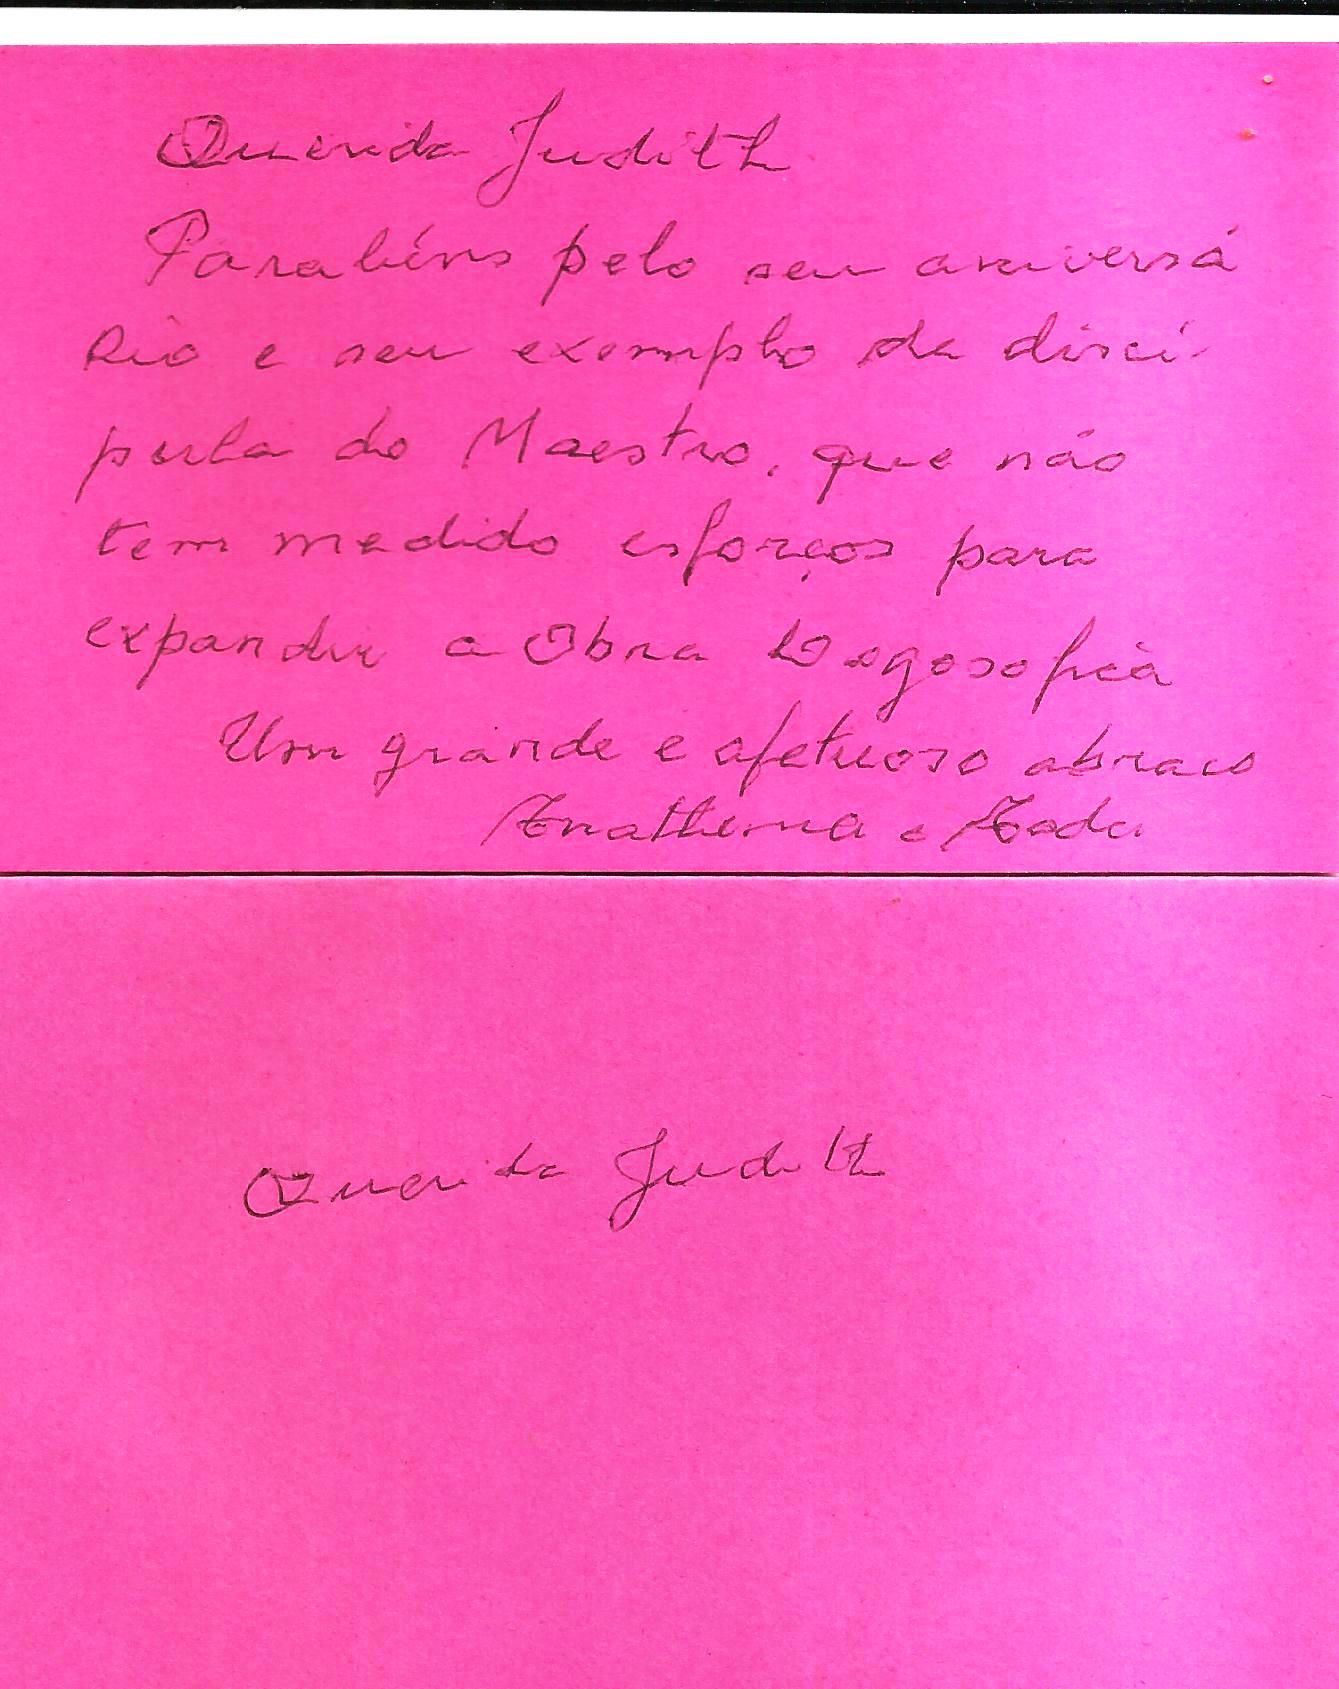 Querida Judith
Parabéns pelo seu aniversá
rio e seu exemplo de discí
pula do Maestro, que não
tem medido esforços para
expandir a Obra Logosofica
Um grande e afetuoso abraco
e
Querida Judith